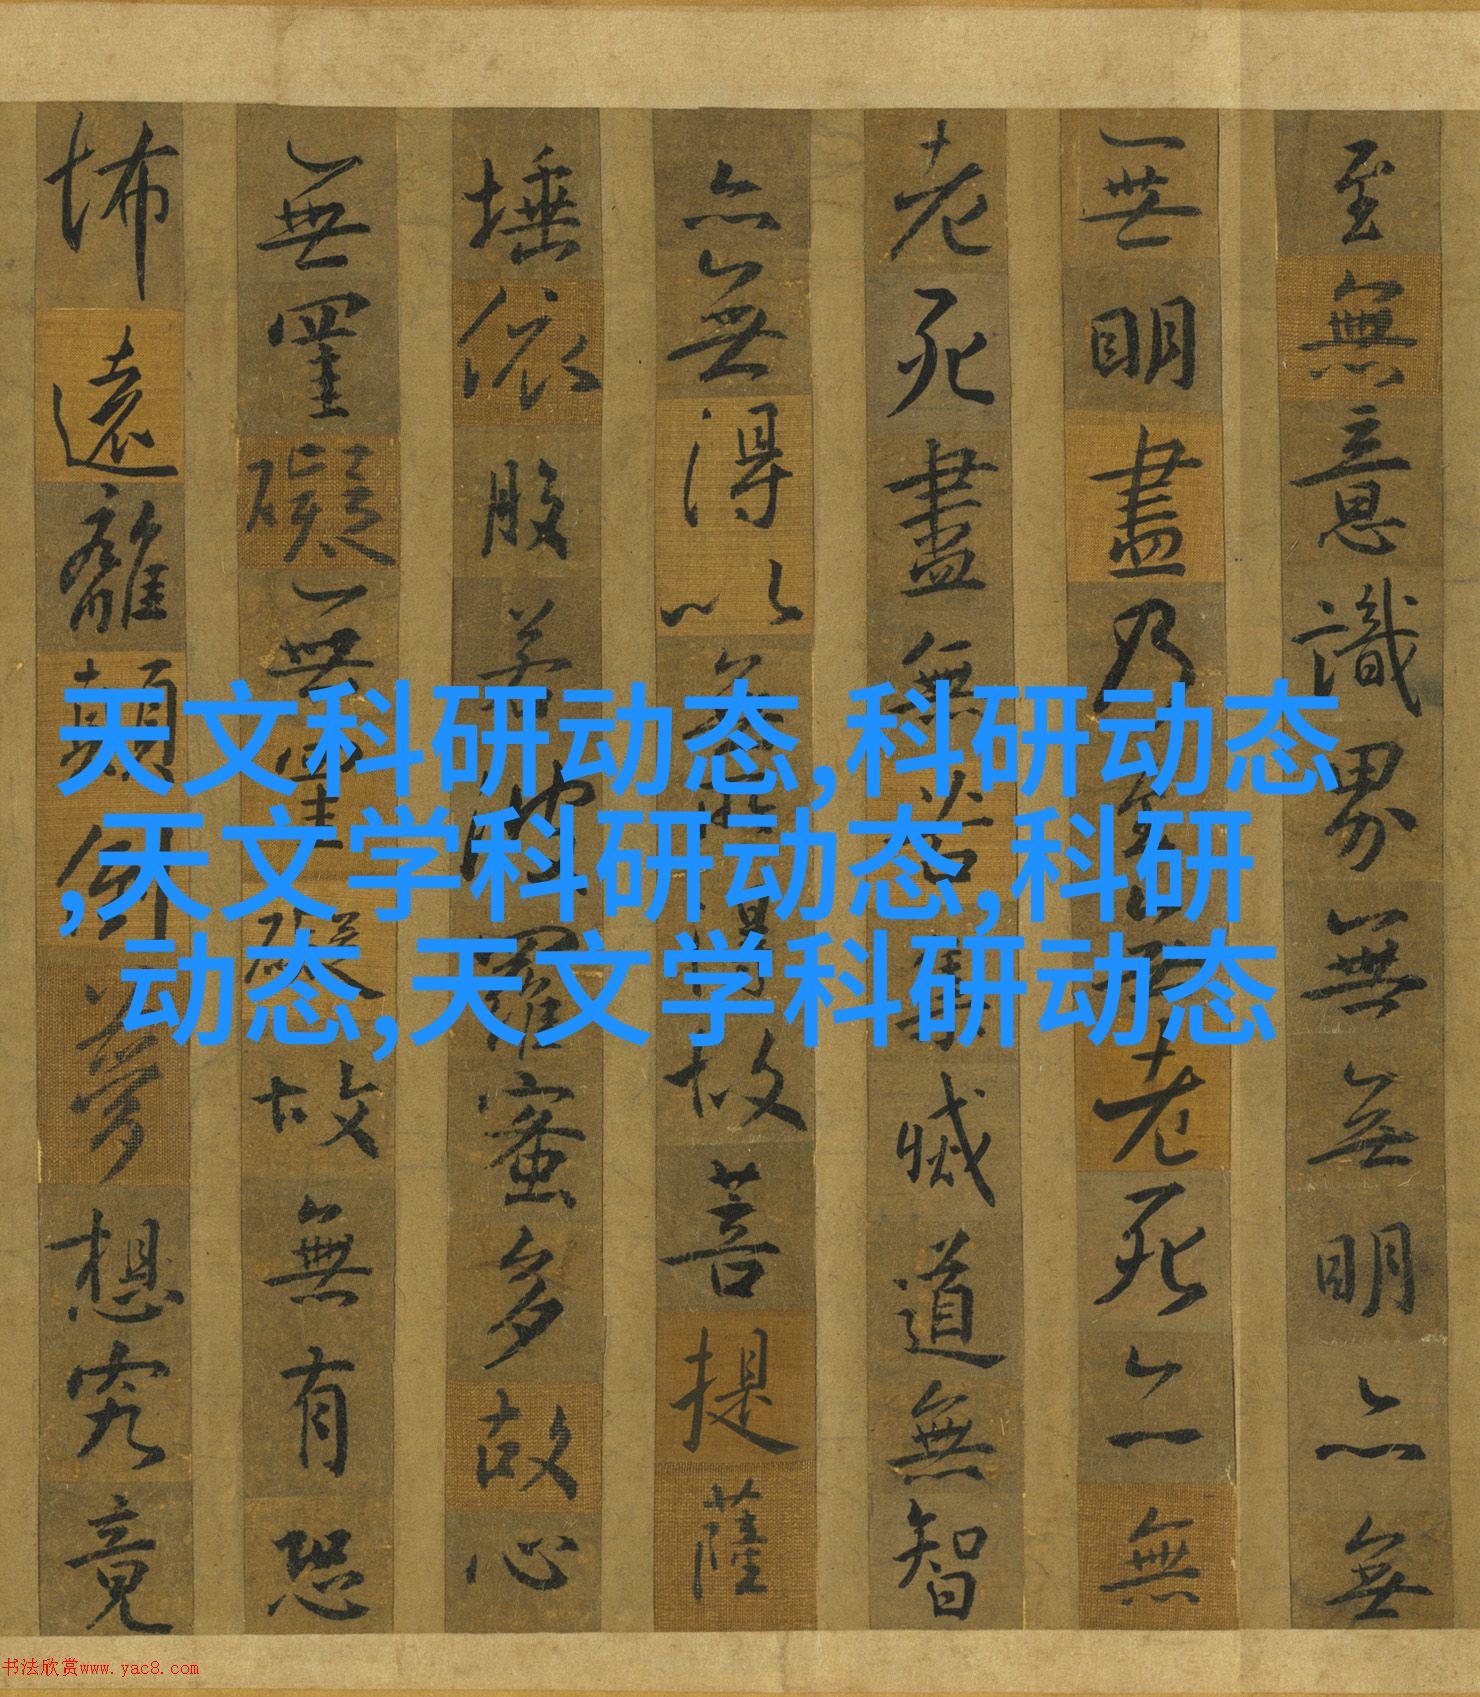 至無意識界無無明亦無
無明盡乃至無老死亦無
老死盡無苦集滅道無智
亦無得以無所得故菩提薩
埵依般若波羅蜜多故心
無罣礙無罣礙故無有恐
怖遠離顛倒夢想究竟
天文科研动态,科研动态
,天文学科研动态,科研
动态,天文学科研动态
书法欣赏www.yac8.com